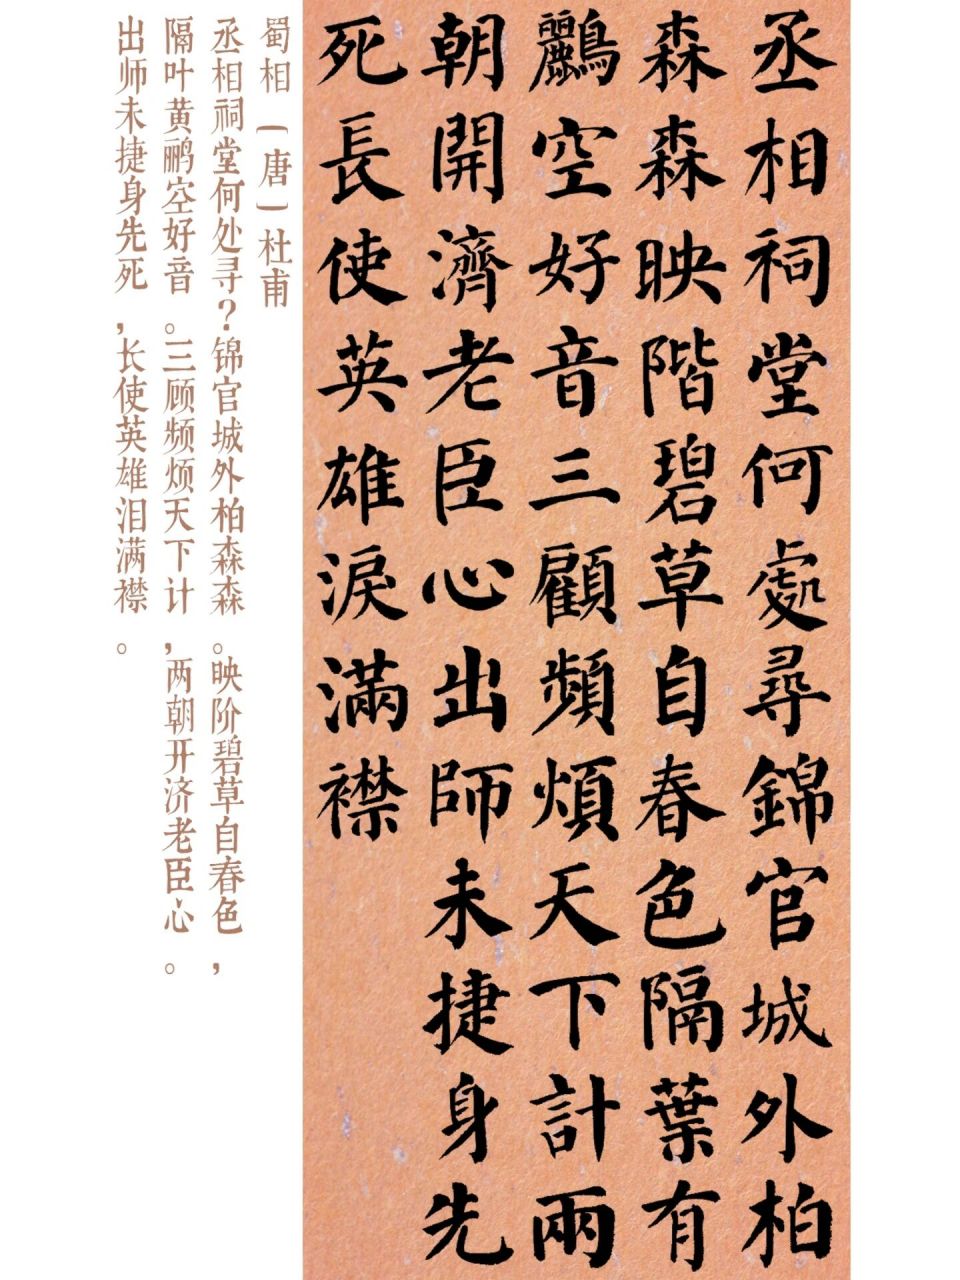 丞相祠堂何處尋錦官城外柏
森森映階碧草自春色隔葉有
鸝空好音三顧頻煩天下計兩
朝開濟老臣心出師未捷身先
死長使英雄淚滿襟
蜀相〔唐〕杜甫
丞相祠堂何处寻？锦官城外柏森森。映阶碧草自春色，
隔叶黄鹂空好音。三顾频烦天下计，两朝开济老臣心。
出师未捷身先死，长使英雄泪满襟。